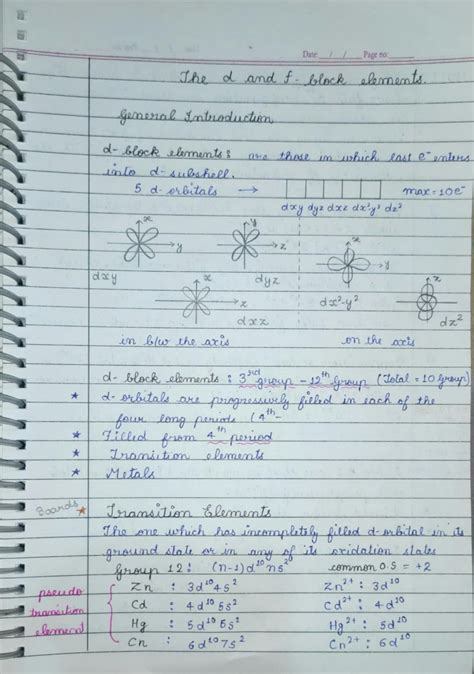 Date / / Page no:
The d and f-block elements.
General Introduction
d-block elements: are those in which last e⁻ enters
into d-subshell.
5 d-orbitals → max = 10e⁻
dxy dyz dxz dx²y² dz²
x y
y z
x
dxy dyz
x z
dxz dx²-y² dz²
in b/w the axis on the axis
d-block elements : 3rd group - 12th group (Total = 10 group)
* d-orbitals are progressively filled in each of the
four long periods (4th-
* Filled from 4th period
* Transition elements
* Metals
Boards * Transition Elements
The one which has incompletely filled d-orbital in its
ground state or in any of its oxidation states
Group 12: (n-1)d¹⁰ns² common O.S = +2
pseudo transition element
Zn : 3d¹⁰4s² Zn²⁺ : 3d¹⁰
Cd : 4d¹⁰5s² Cd²⁺ : 4d¹⁰
Hg : 5d¹⁰6s² Hg²⁺ : 5d¹⁰
Cn : 6d¹⁰7s² Cn²⁺ : 6d¹⁰